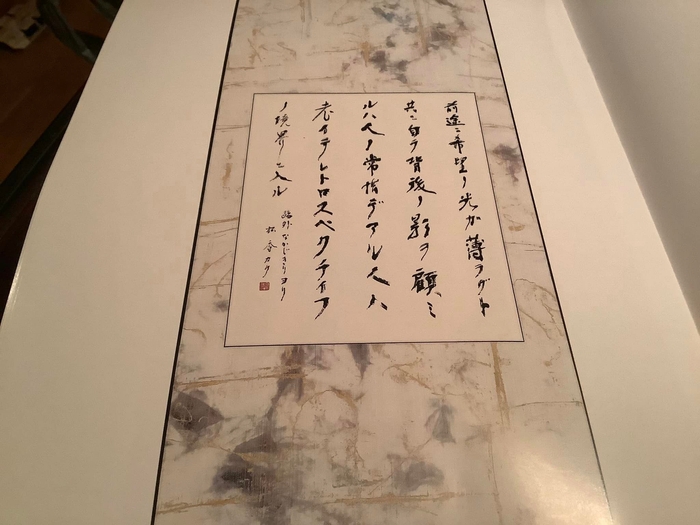 前途ニ希望ノ光ガ薄ラグト
共ニ自ラ背後ノ影ヲ顧ミ
ルハ人ノ常情デアル人ハ
老イテレトロスペクチイフ
ノ境界ニ入ル
鴎外なかじきりヨリ
カク